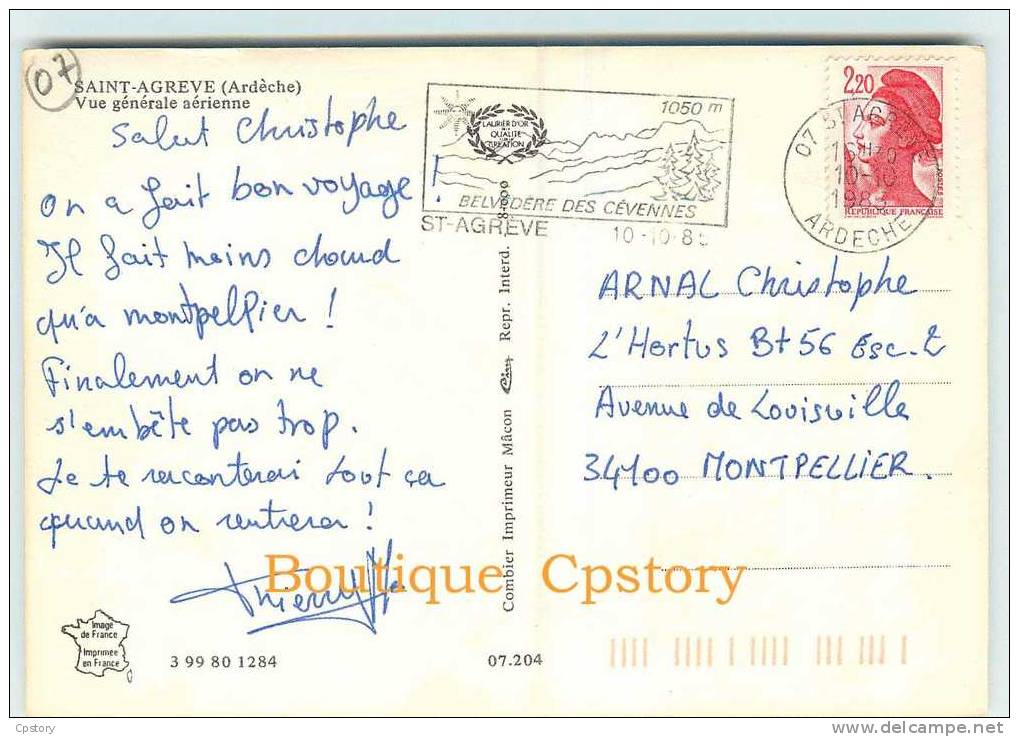 07
SAINT-AGREVE (Ardèche)
Vue générale aérienne
Salut Christophe
On a fait bon voyage !
Il fait moins chaud
qu'a montpellier !
Finalement on ne
s'embête pas trop.
Je te raconterai tout ça
quand on rentrera !
Thierry
Image
de France
Imprimée
en France
3 99 80 1284
07.204
Combier Imprimeur Mâcon Cim Repr. Interd.
1050 m
LAURIER D'OR
QUALITÉ
CRÉATION
BELVÉDÈRE DES CÉVENNES
ST-AGRÈVE 10-10-8
2,20
POSTES
REPUBLIQUE FRANÇAISE
07 ST AGREVE
10-10
198
ARDECHE
ARNAL Christophe
L'Hortus Bt 56 Esc. 2
Avenue de Louisville
34100 MONTPELLIER.
Boutique Cpstory
Cpstory
www.delcampe.net